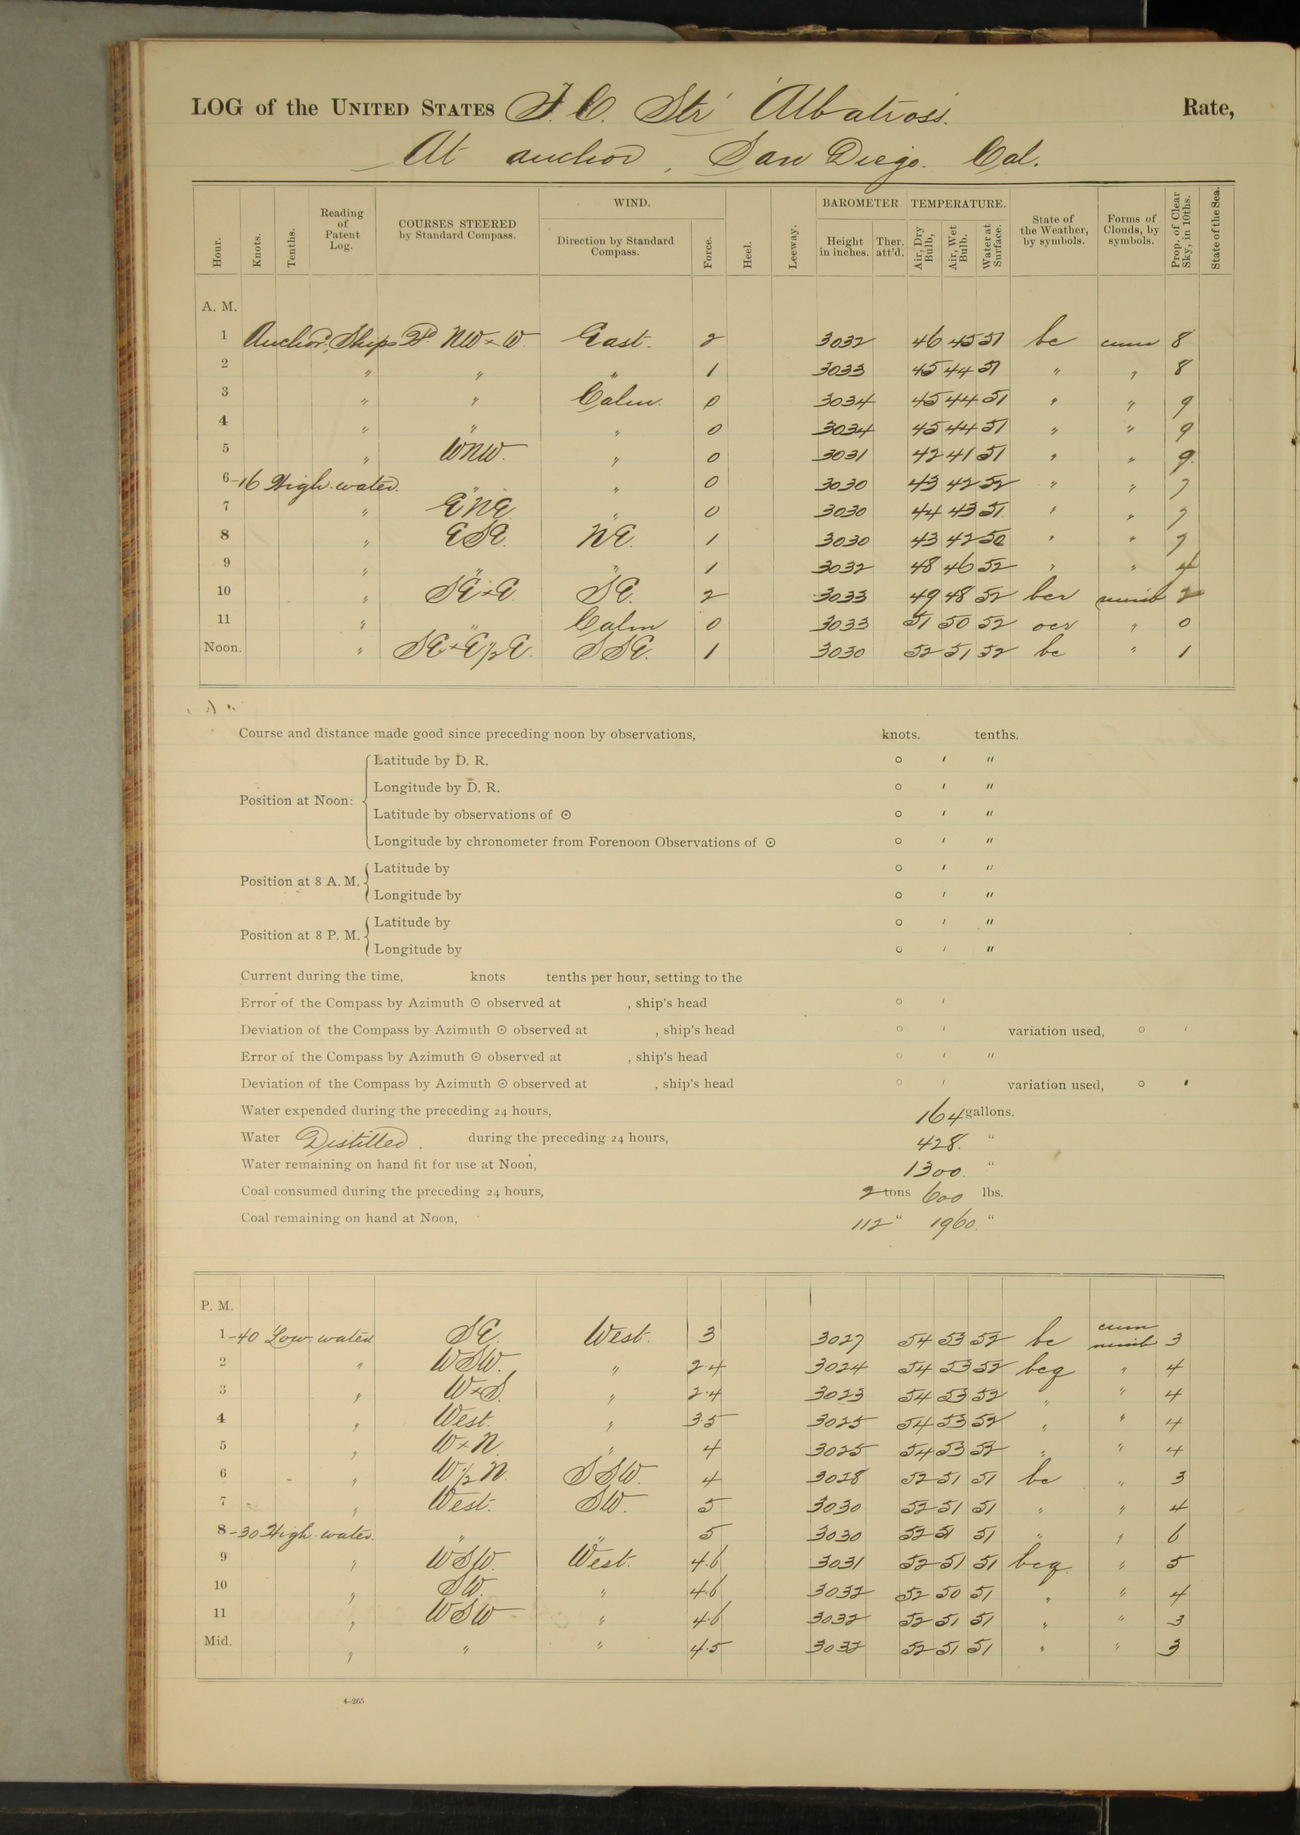 LOG of the UNITED STATES F.C. Str "Albatross. Rate,
At anchor, San Diego. Cal.
Hour. Knots. Tenths. Reading of Patent Log. COURSES STEERED by Standard Compass. WIND. Direction by Standard Compass. Force. Heel. Leeway. BAROMETER. Height in inches. Ther. att'd. TEMPERATURE. Air, Dry Bulb, Air, Wet Bulb. Water at Surface. State of the Weather, by symbols. Forms of Clouds, by symbols. Prop. of Clear Sky, in 10ths. State of the Sea.
A. M.
1 Anchor, Ships Hd. NW x W East. 2 3032 46 45 51 bc cum 8
2 " " " 1 3033 45 44 51 " " 8
3 " " Calm. 0 3034 45 44 51 " " 9
4 " " " 0 3034 45 44 51 " " 9
5 " WNW. " 0 3031 42 41 51 " " 9
6-16 High water. " " 0 3030 43 42 52 " " 7
7 " ENE. " 0 3030 44 43 51 " " 7
8 " ESE. NE. 1 3030 43 42 50 " " 7
9 " " " 1 3032 48 46 52 " " 4
10 " SE x E. SE. 2 3033 49 48 52 bcr nimb 2
11 " " Calm 0 3033 51 50 52 ocr " 0
Noon. " SE x E 1/2 E. SSE. 1 3030 52 51 52 bc " 1
Course and distance made good since preceding noon by observations, knots. tenths.
Position at Noon: Latitude by D. R. ° ′ ″
Longitude by D. R. ° ′ ″
Latitude by observations of ☉ ° ′ ″
Longitude by chronometer from Forenoon Observations of ☉ ° ′ ″
Position at 8 A. M. Latitude by ° ′ ″
Longitude by ° ′ ″
Position at 8 P. M. Latitude by ° ′ ″
Longitude by ° ′ ″
Current during the time, knots tenths per hour, setting to the
Error of the Compass by Azimuth ☉ observed at , ship's head ° ′
Deviation of the Compass by Azimuth ☉ observed at , ship's head ° ′ variation used, ° ′
Error of the Compass by Azimuth ☉ observed at , ship's head ° ′ ″
Deviation of the Compass by Azimuth ☉ observed at , ship's head ° ′ variation used, ° ′
Water expended during the preceding 24 hours, 164 gallons.
Water Distilled. during the preceding 24 hours, 428. "
Water remaining on hand fit for use at Noon, 1300. "
Coal consumed during the preceding 24 hours, 2 tons 600 lbs.
Coal remaining on hand at Noon, 112 " 1960. "
P. M.
1-40 Low water SE. West. 3 3027 54 53 52 bc cum nimb 3
2 " WSW. " 2-4 3024 54 53 52 bcq " 4
3 " W x S. " 2-4 3023 54 53 52 " " 4
4 " West. " 3-5 3025 54 53 52 " " 4
5 " W x N. " 4 3025 54 53 52 " " 4
6 " W 1/2 N. SSW. 4 3028 52 51 51 bc " 3
7 " West. SW. 5 3030 52 51 51 " " 4
8-30 High water. " " 5 3030 52 51 51 " " 6
9 " WSW. West. 4-6 3031 52 51 51 bcq. " 5
10 " SW. " 4-6 3032 52 50 51 " " 4
11 " WSW " 4-6 3032 52 51 51 " " 3
Mid. " " " 4-5 3032 52 51 51 " " 3
4-265